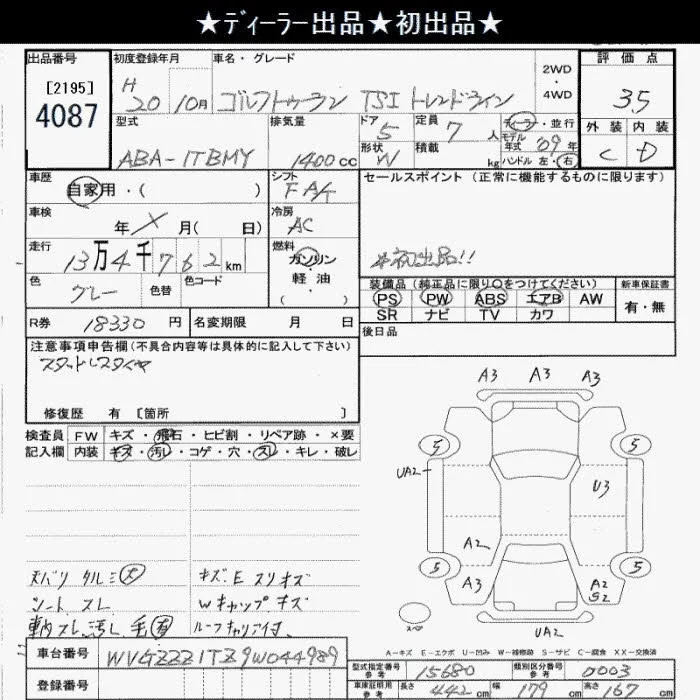 ★ディーラー出品★初出品★
出品番号
[2195]
4087
初度登録年月
H 20 10月
車名・グレード
ゴルフトゥーラン TSI トレンドライン
2WD
4WD
評価点
3.5
外装 内装
C D
型式
ABA-1TBMY
排気量
1400cc
ドア 5
形状 W
定員 7人
積載 kg
ディーラー・並行
モデル年式 '09年
ハンドル 左・右
車歴
自家用・( )
シフト
FA/T
セールスポイント (正常に機能するものに限ります)
*初出品!!
車検
年 月( 日)
冷房
AC
走行
13万4千762km
燃料
ガソリン
軽油
( ・ )
色
グレー
色替
色コード
装備品 (純正品に限り○をつけてください)
新車保証書
PS PW ABS エアB AW
SR ナビ TV カワ
有・無
R券 18330円
名変期限 月 日
後日品
注意事項申告欄(不具合内容等は具体的に記入して下さい)
スタッドレスタイヤ
修復歴 有 [箇所 ]
検査員記入欄
FW キズ・飛石・ヒビ割・リペア跡・×要
内装 キズ・汚レ・コゲ・穴・スレ・キレ・破レ
A3 A3 A3
5 5
UA2
U3
A2
5 5
A3
A2
S2
スペ
UA2
天バリ タルミ大
シート スレ
車内スレ、汚レ 毛有
キズE スリキズ
Wキャップ キズ
ルーフキャリア付
A-キズ E-エクボ U-凹み W-補修跡 S-サビ C-腐食 XX-交換済
車台番号
WVGZZZ1TZ9W044989
登録番号
型式指定番号 参考 15680
類別区分番号 参考 0003
車庫証明用 参考 長さ 442cm 幅 179cm 高さ 167cm